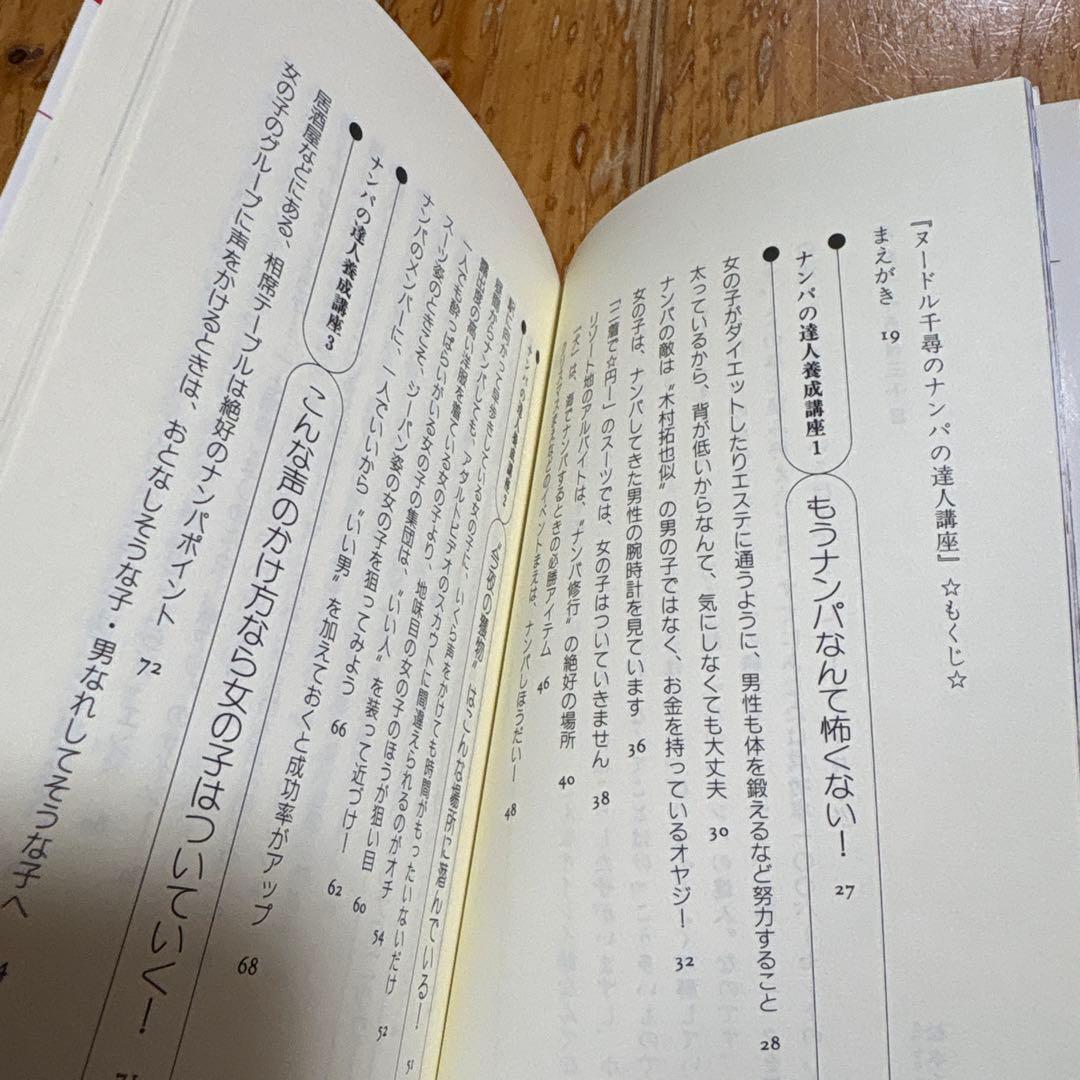 『ヌードル千尋のナンパの達人講座』☆もくじ☆
まえがき 19
ナンパの達人養成講座1 もうナンパなんて怖くない! 27
女の子がダイエットしたりエステに通うように、男性も体を鍛えるなど努力すること 28
太っているから、背が低いからなんて、気にしなくても大丈夫 30
ナンパの敵は〝木村拓也似〟の男の子ではなく、お金を持っているオヤジ! 32
女の子は、ナンパしてきた男性の腕時計を見ています 36
「二着で☆円ー」のスーツでは、女の子はついていきません 38
リゾート地のアルバイトは、〝ナンパ修行〟の絶好の場所 40
「犬」は、海でナンパするときの必勝アイテム 46
クリスマスまえなどのイベントまえは、ナンパしほうだいー 48
ナンパの達人養成講座2 〝今夜の獲物〟はこんな場所に潜んでいる! 51
駅に向かって早歩きしている女の子に、いくら声をかけても時間がもったいないだけ 52
昼間からナンパしても、アダルトビデオのスカウトに間違えられるのがオチ 54
露出度の高い洋服を着ている女の子より、地味目の女の子のほうが狙い目 60
一人でも酔っぱらいがいる女の子の集団は、〝いい人〟を装って近づけー 62
スーツ姿のときこそ、ジーパン姿の女の子を狙ってみよう 66
ナンパのメンバーに、一人でいいから〝いい男〟を加えておくと成功率がアップ 68
ナンパの達人養成講座3 こんな声のかけ方なら女の子はついていく! 71
居酒屋などにある、相席テーブルは絶好のナンパポイント 72
女の子のグループに声をかけるときは、おとなしそうな子・男なれしてそうな子へ